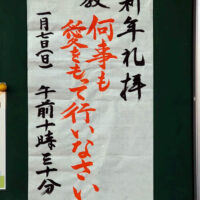 新年礼拝
何事も
愛をもって行いなさい
一月七日(日) 午前十時三十分